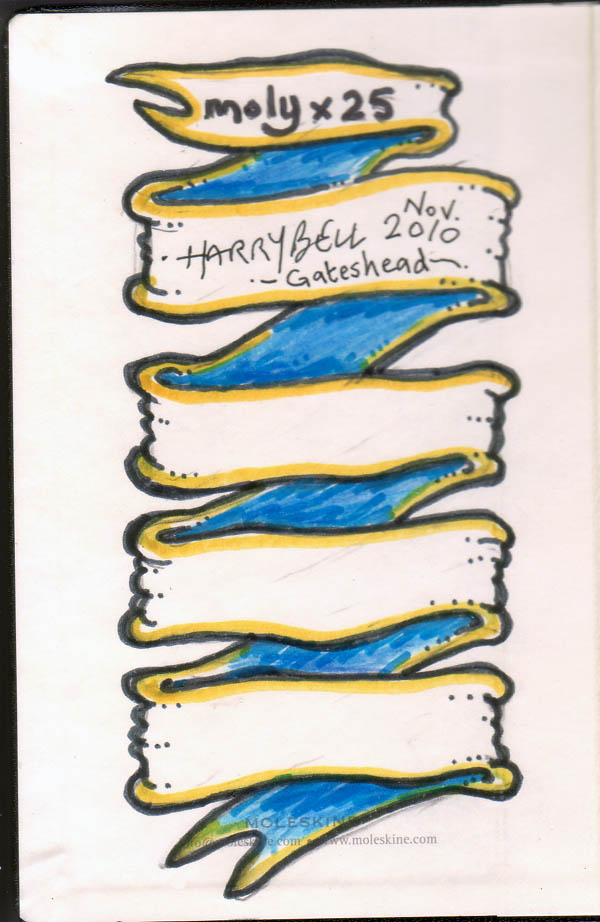 moly x 25
HARRY BELL Nov. 2010
~Gateshead~
MOLESKINE
www.moleskine.com